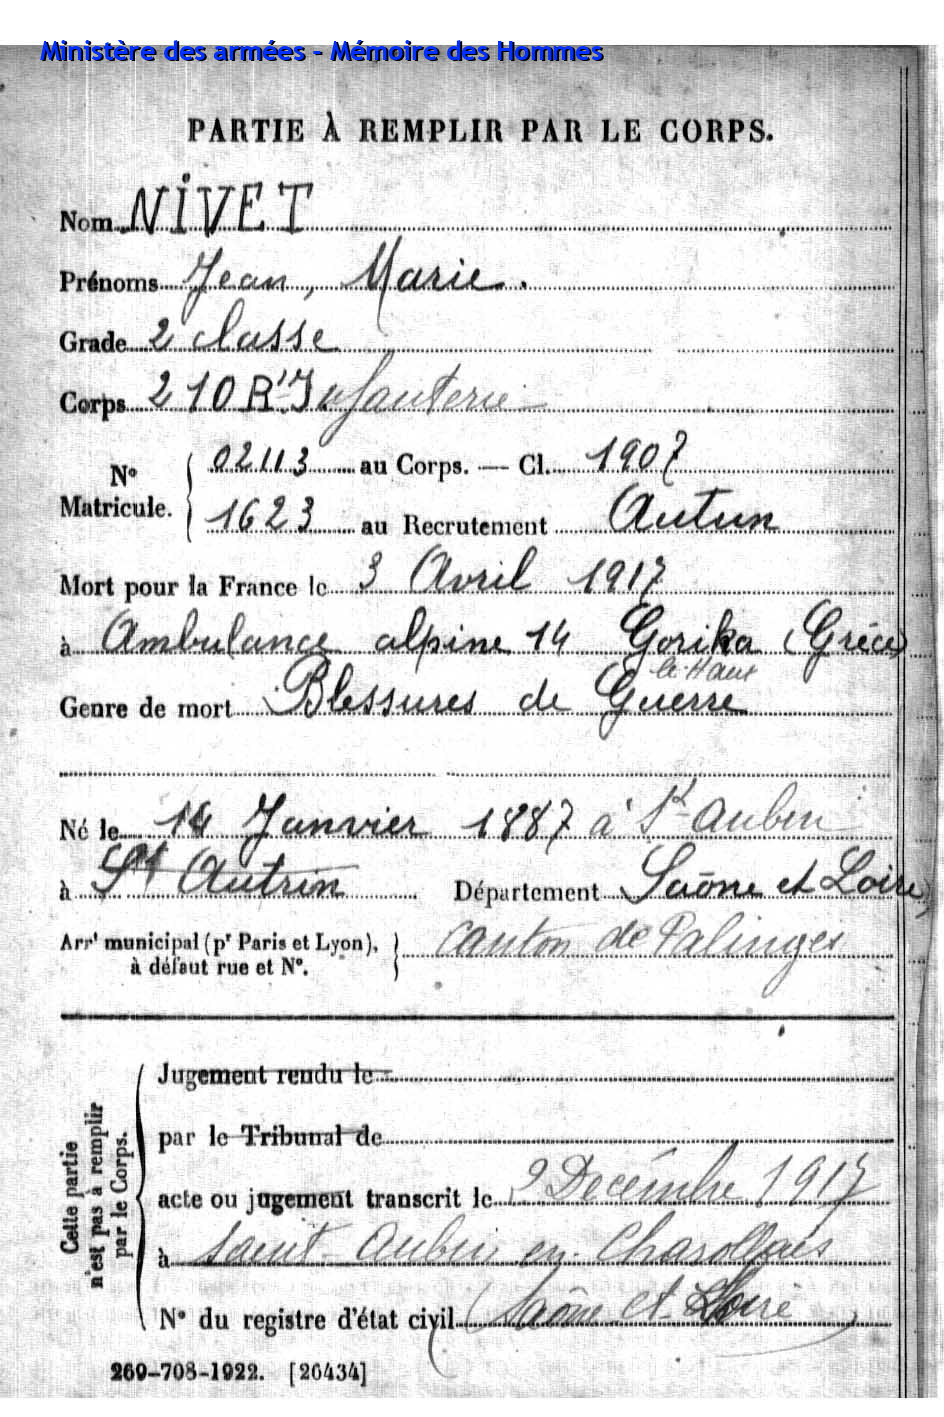 Ministère des armées - Mémoire des Hommes
PARTIE À REMPLIR PAR LE CORPS.
Nom NIVET
Prénoms Jean, Marie.
Grade 2 classe
Corps 210 Rt Infanterie
N° Matricule. 02113 au Corps. — Cl. 1907
1623 au Recrutement Autun
Mort pour la France le 3 Avril 1917
à Ambulance alpine 14 Gorika (Gréce)
le Haut
Genre de mort Blessures de Guerre
Né le 14 Janvier 1887 à St Aubin
à St Autrin Département Saône et Loire
Arrt municipal (pr Paris et Lyon), à défaut rue et N°. canton de Palinges
Cette partie n'est pas à remplir par le Corps.
Jugement rendu le
par le Tribunal de
acte ou jugement transcrit le 9 Decembre 1917
à Saint-Aubin en Charollais
N° du registre d'état civil (Saône et Loire)
269-708-1922. [26434]